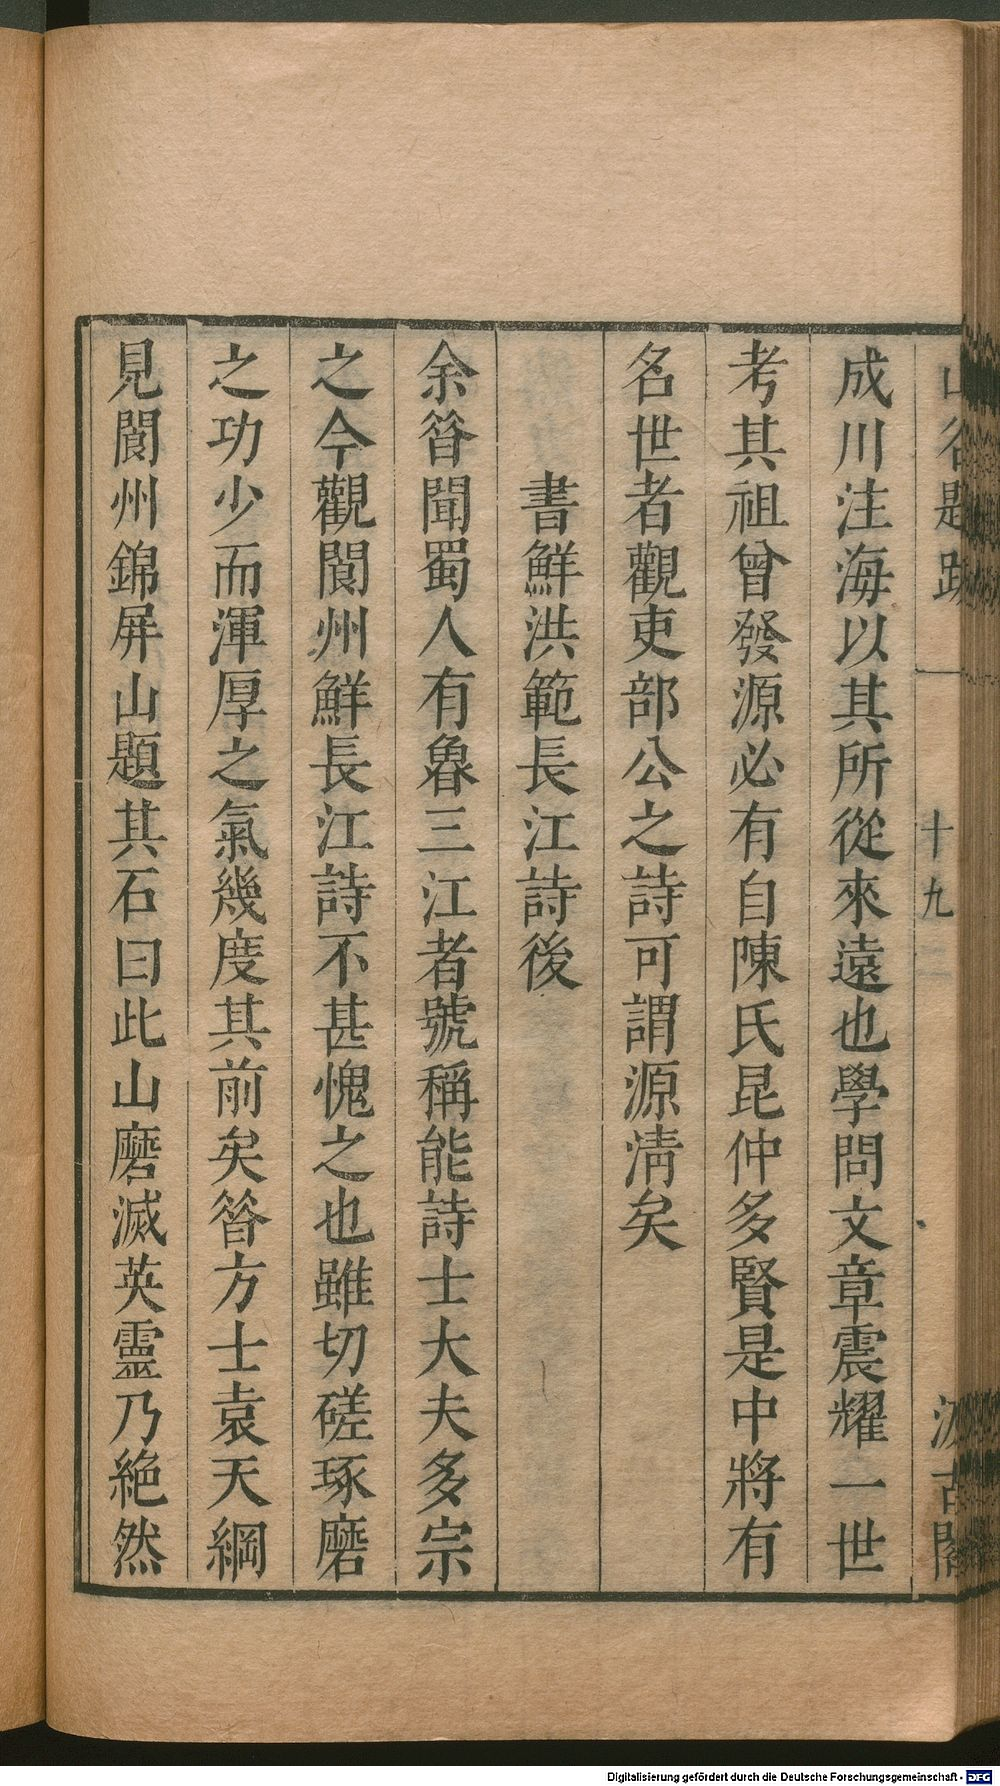 成川注海以其所從來遠也學問文章震耀一世
考其祖曾發源必有自陳氏昆仲多賢是中將有
名世者觀吏部公之詩可謂源淸矣
書鮮洪範長江詩後
余昝聞蜀人有魯三江者號稱能詩士大夫多宗
之今觀閬州鮮長江詩不甚愧之也雖切磋琢磨
之功少而渾厚之氣幾度其前矣昝方士袁天綱
見閬州錦屏山題其石曰此山磨滅英靈乃絶然
山谷題跋
一
十九
汲古閣
Digitalisierung gefördert durch die Deutsche Forschungsgemeinschaft - DFG